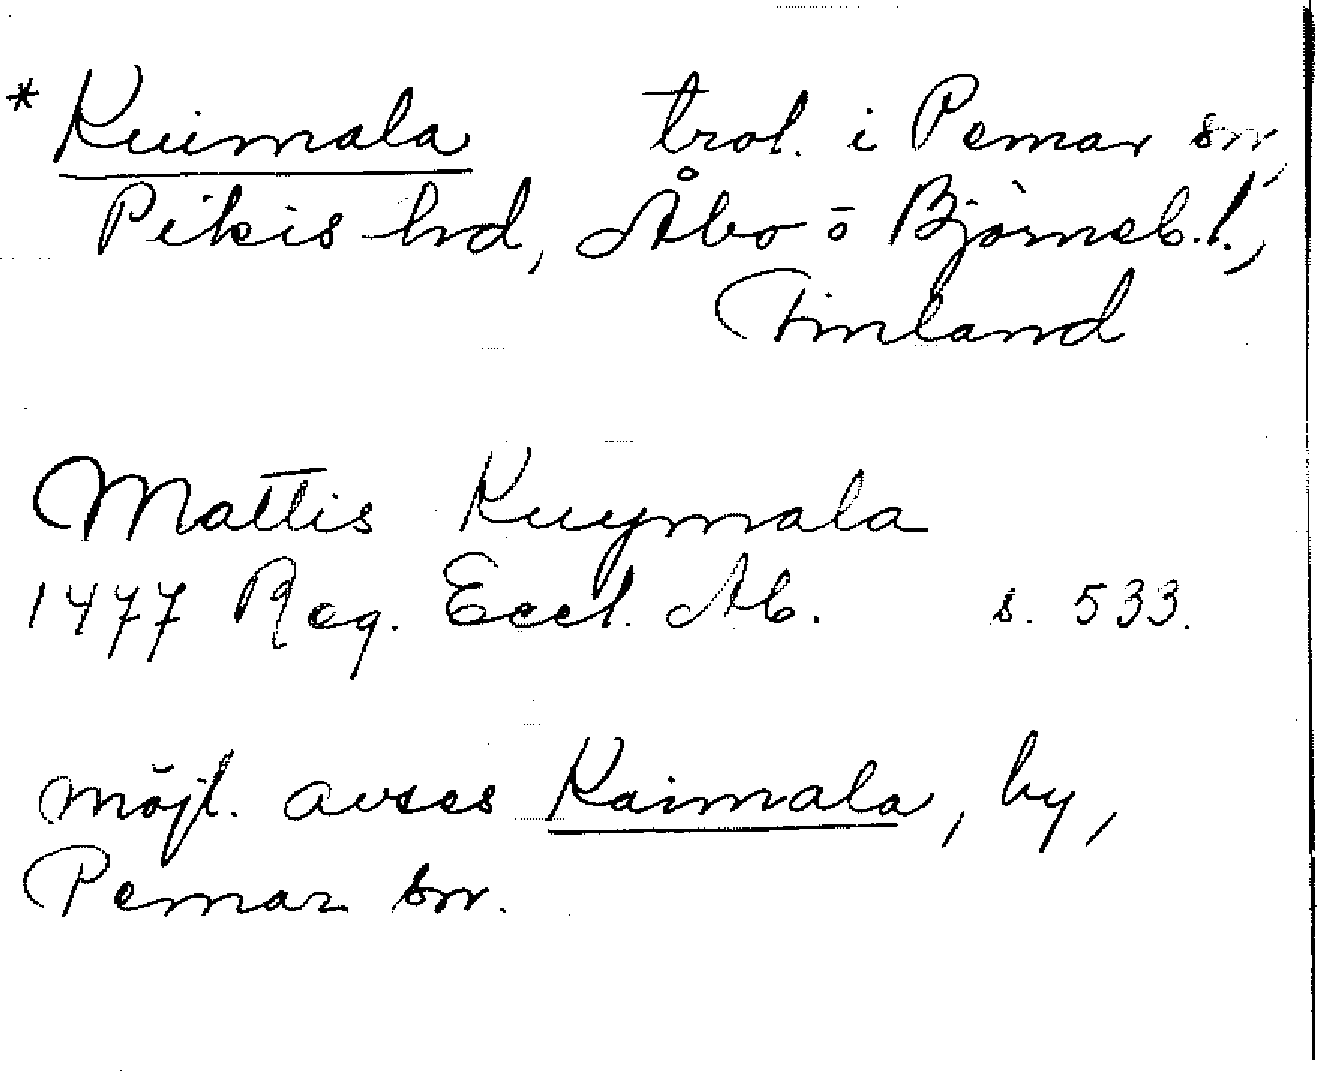 * Kuimala trol. i Pemar sn,
Pikis hd, Åbo o Björneb. l.,
Finland
Mattis Kuymala
1477 Reg. Eccl. Ab. s. 533.
möjl. avses Kaimala, by,
Pemar sn.